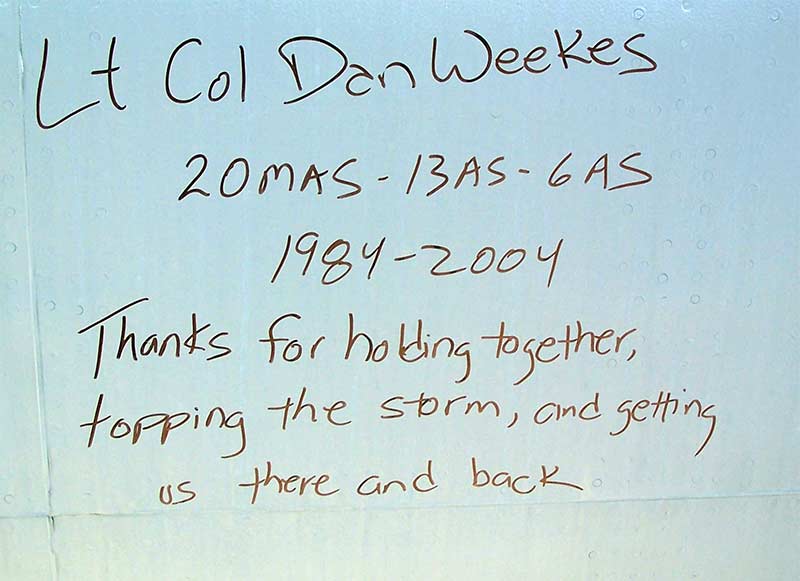 Lt Col Dan Weekes
20MAS - 13AS - 6AS
1984-2004
Thanks for holding together,
topping the storm, and getting
us there and back